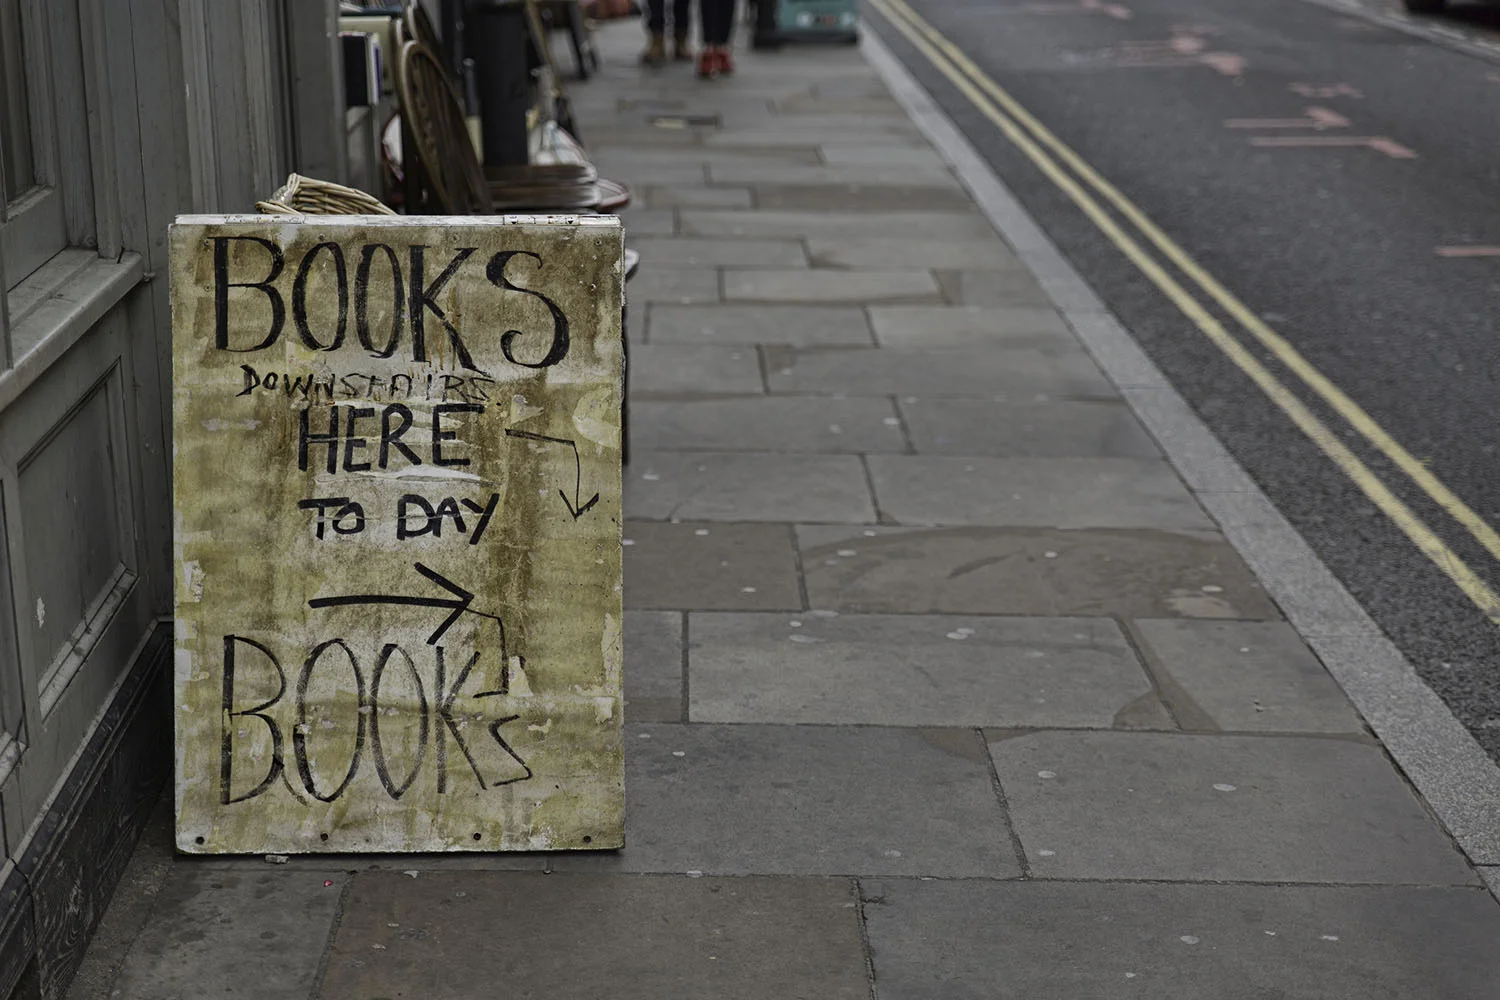 BOOKS
DOWNSTAIRS
HERE
TO DAY
BOOKS